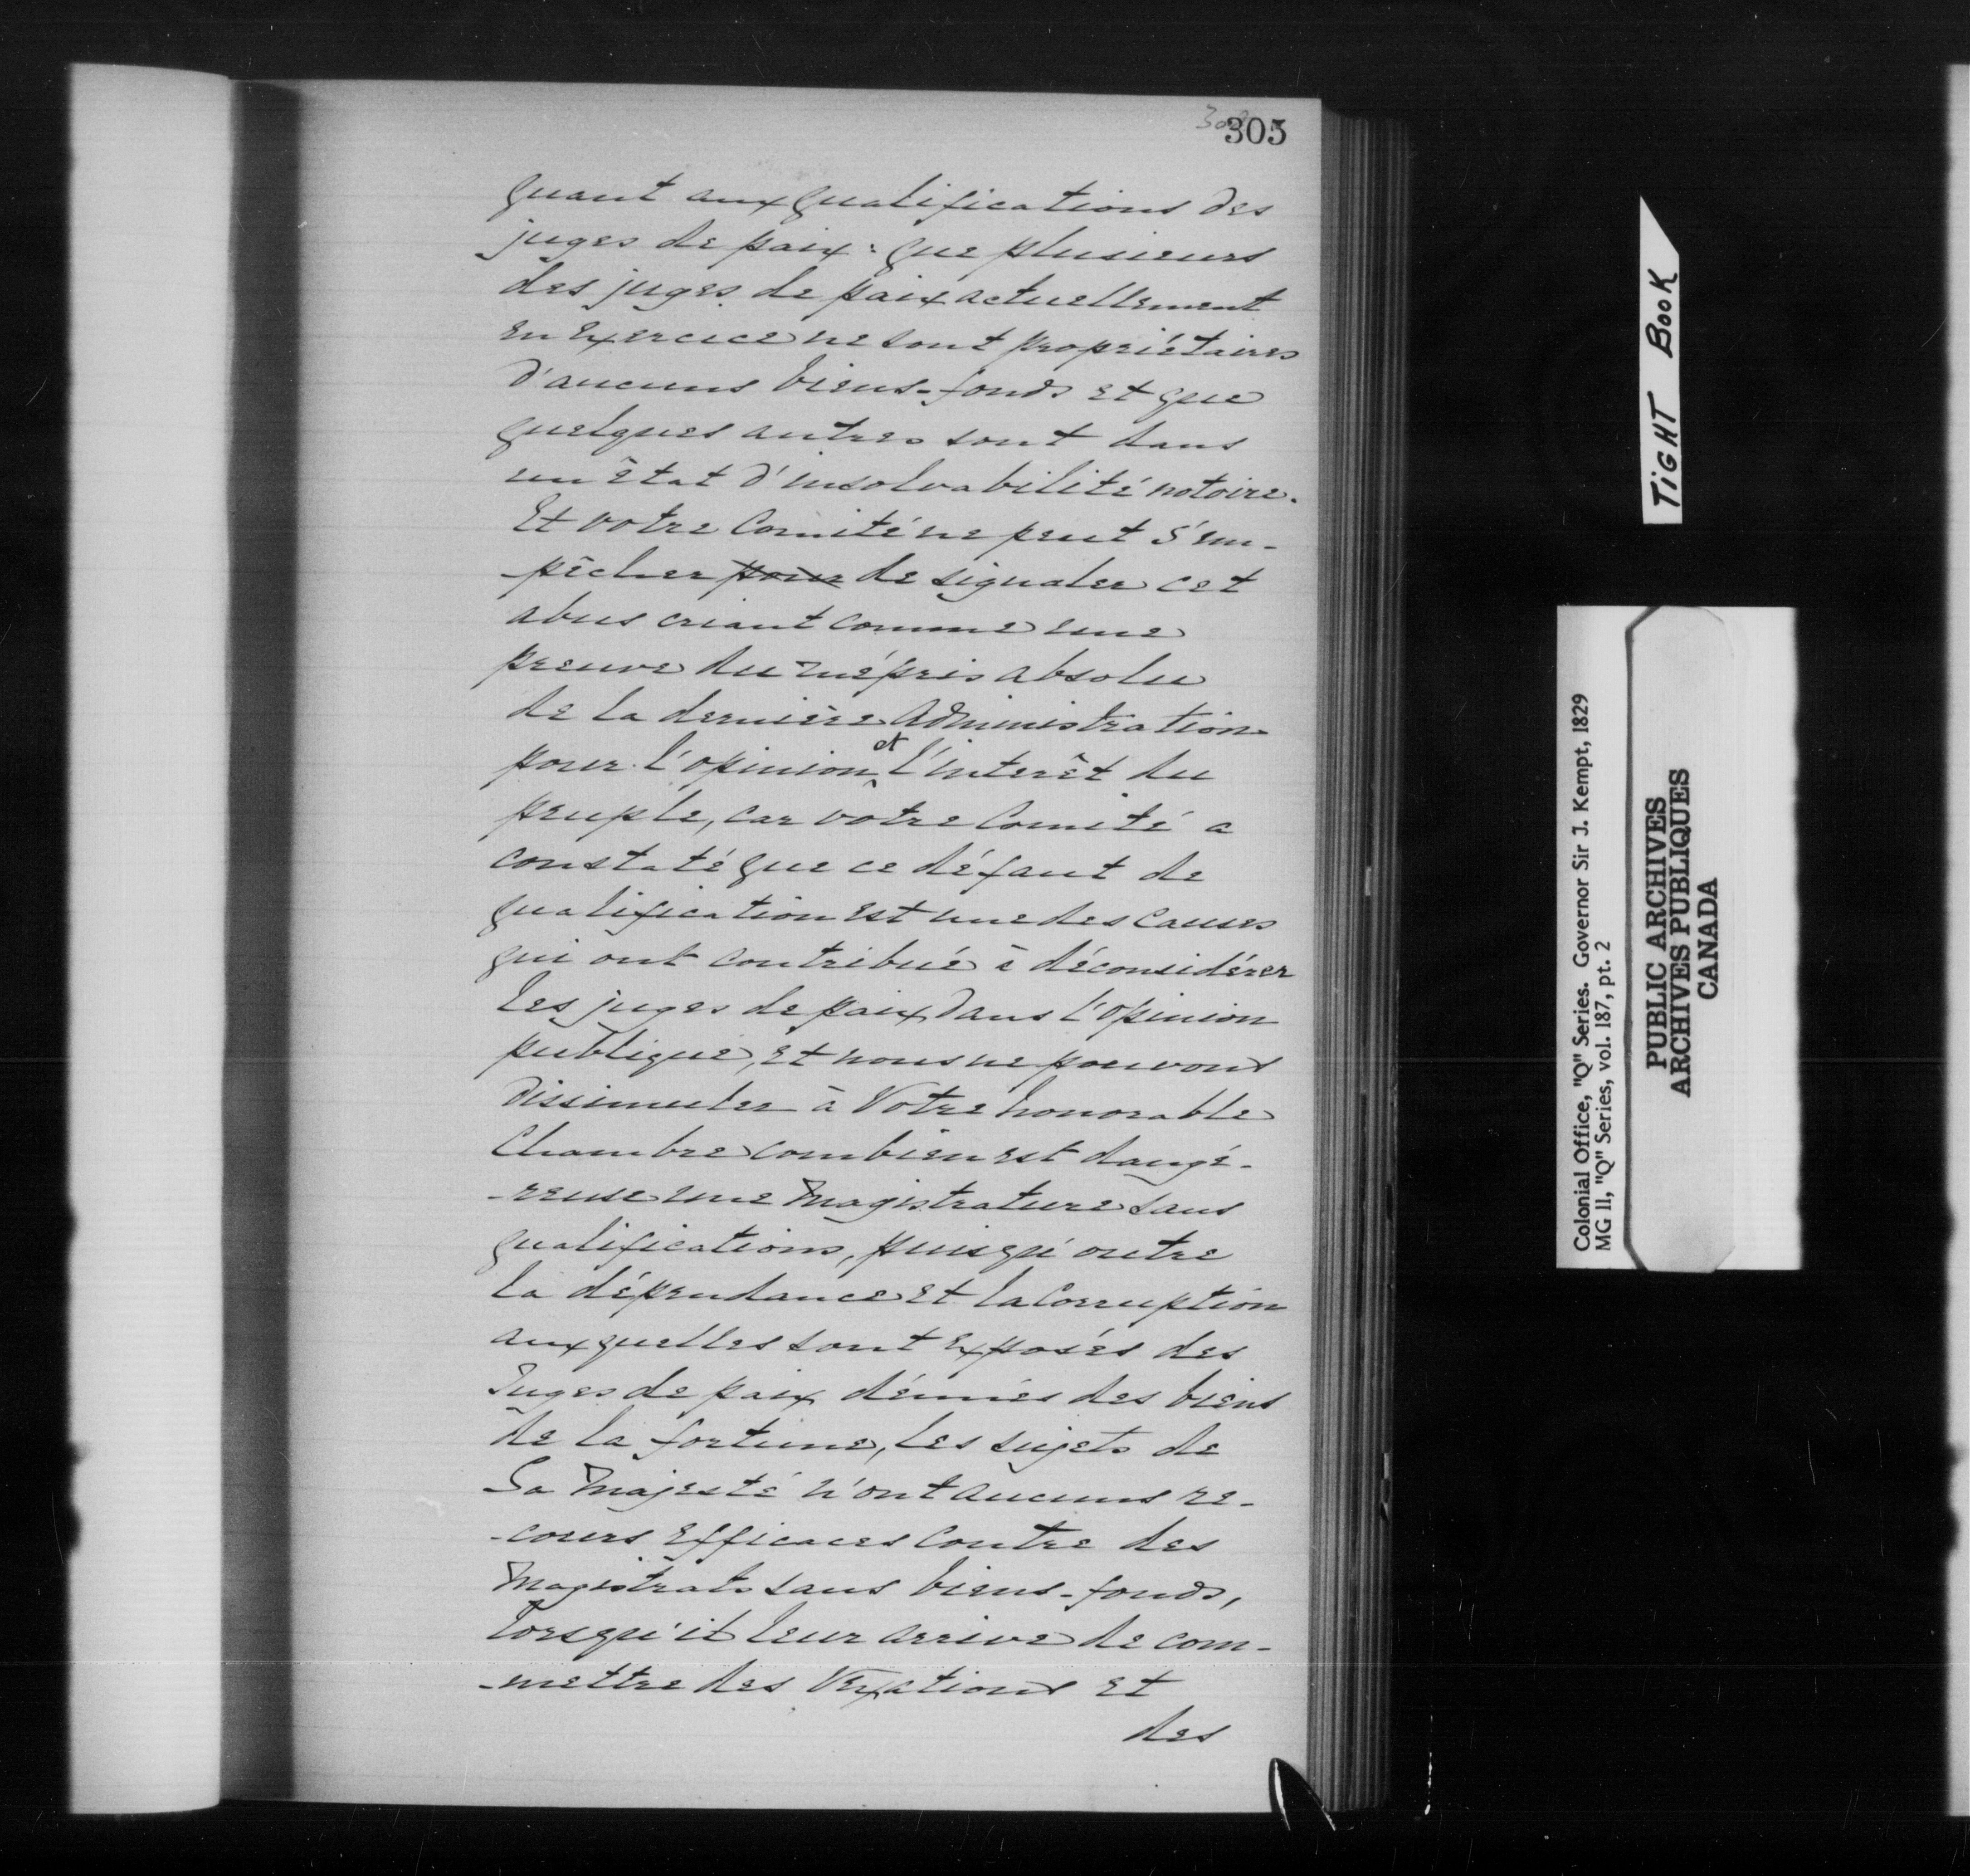 305
quant aux qualifications des
juges de paix: que plusieurs
des juges de paix actuellement
en exercice ne sont propriétaires
d'aucuns biens-fonds et que
quelques autres sont dans
un état d'insolvabilité notoire.
Et votre Comité ne peut s'em-
-pêcher pour de signaler cet
abus criant comme une
preuve du mépris absolu
de la dernière Administration
pour l'opinion et l'interêt du
peuple, car vôtre Comité a
constaté que ce défaut de
qualification est une des causes
qui ont contribué à déconsidérer
les juges de paix dans l'opinion
publique, et nous ne pouvons
dissimuler à Votre honorable
Chambre combien est dangé-
-reuse une Magistrature sans
qualifications, puisqu'outre
la dépendance et la Corruption
auxquelles sont exposés des
Juges de paix dénués des biens
de la fortune, les sujets de
Sa Majesté n'ont aucuns re-
-cours efficaces contre des
Magistrats sans biens-fonds,
lorsqu'il leur arrive de com-
-mettre des vexations et
des
TiGHT BOOK
Colonial Office, "Q" Series. Governor Sir J. Kempt, 1829
MG 11, "Q" Series, vol. 187, pt. 2
PUBLIC ARCHIVES
ARCHIVES PUBLIQUES
CANADA